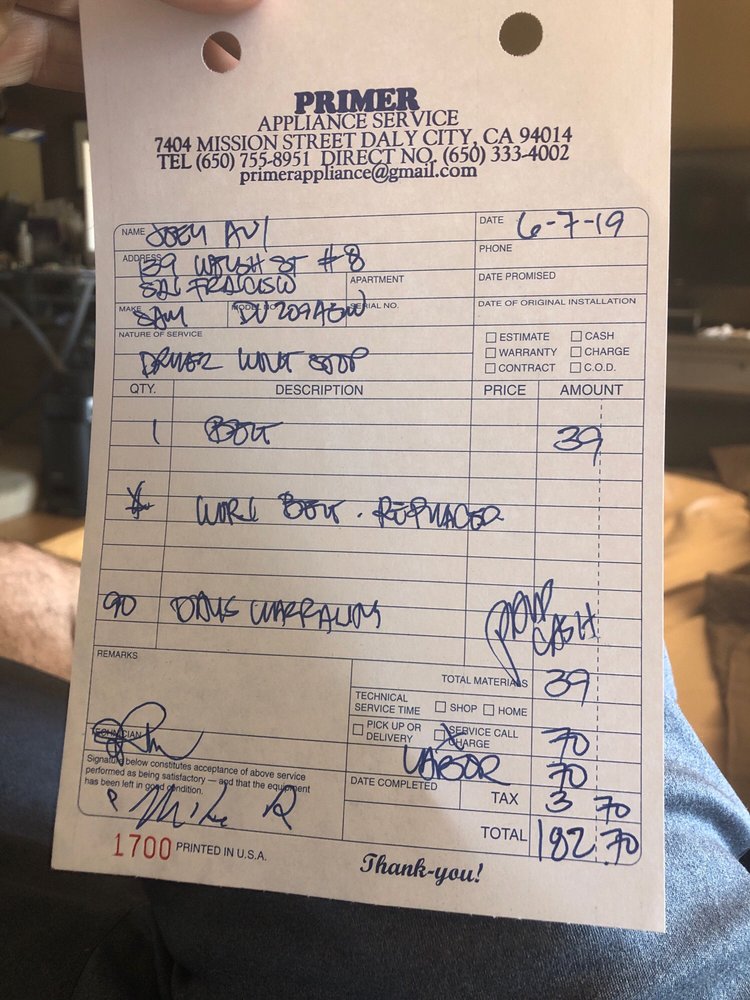 PRIMER
APPLIANCE SERVICE
7404 MISSION STREET DALY CITY, CA 94014
TEL (650) 755-8951 DIRECT NO. (650) 333-4002
primerappliance@gmail.com
NAME JOEY AVI
DATE 6-7-19
ADDRESS 139 WELSH ST #8
PHONE
SAN FRANCISCO
APARTMENT
DATE PROMISED
MAKE SAM MODEL NO. DV209AEW SERIAL NO.
DATE OF ORIGINAL INSTALLATION
NATURE OF SERVICE
DRYER WONT STOP
ESTIMATE CASH
WARRANTY CHARGE
CONTRACT C.O.D.
QTY. DESCRIPTION PRICE AMOUNT
1 BELT 39
WORN BELT. REPLACED
90 DAYS WARRANTY
PAID
CASH
REMARKS
TOTAL MATERIALS 39
TECHNICAL
SERVICE TIME SHOP HOME
PICK UP OR
DELIVERY
SERVICE CALL
CHARGE 70
TECHNICIAN
LABOR 70
Signature below constitutes acceptance of above service
performed as being satisfactory — and that the equipment
has been left in good condition.
DATE COMPLETED
TAX 3 70
Mike R
TOTAL 182.70
1700 PRINTED IN U.S.A.
Thank-you!